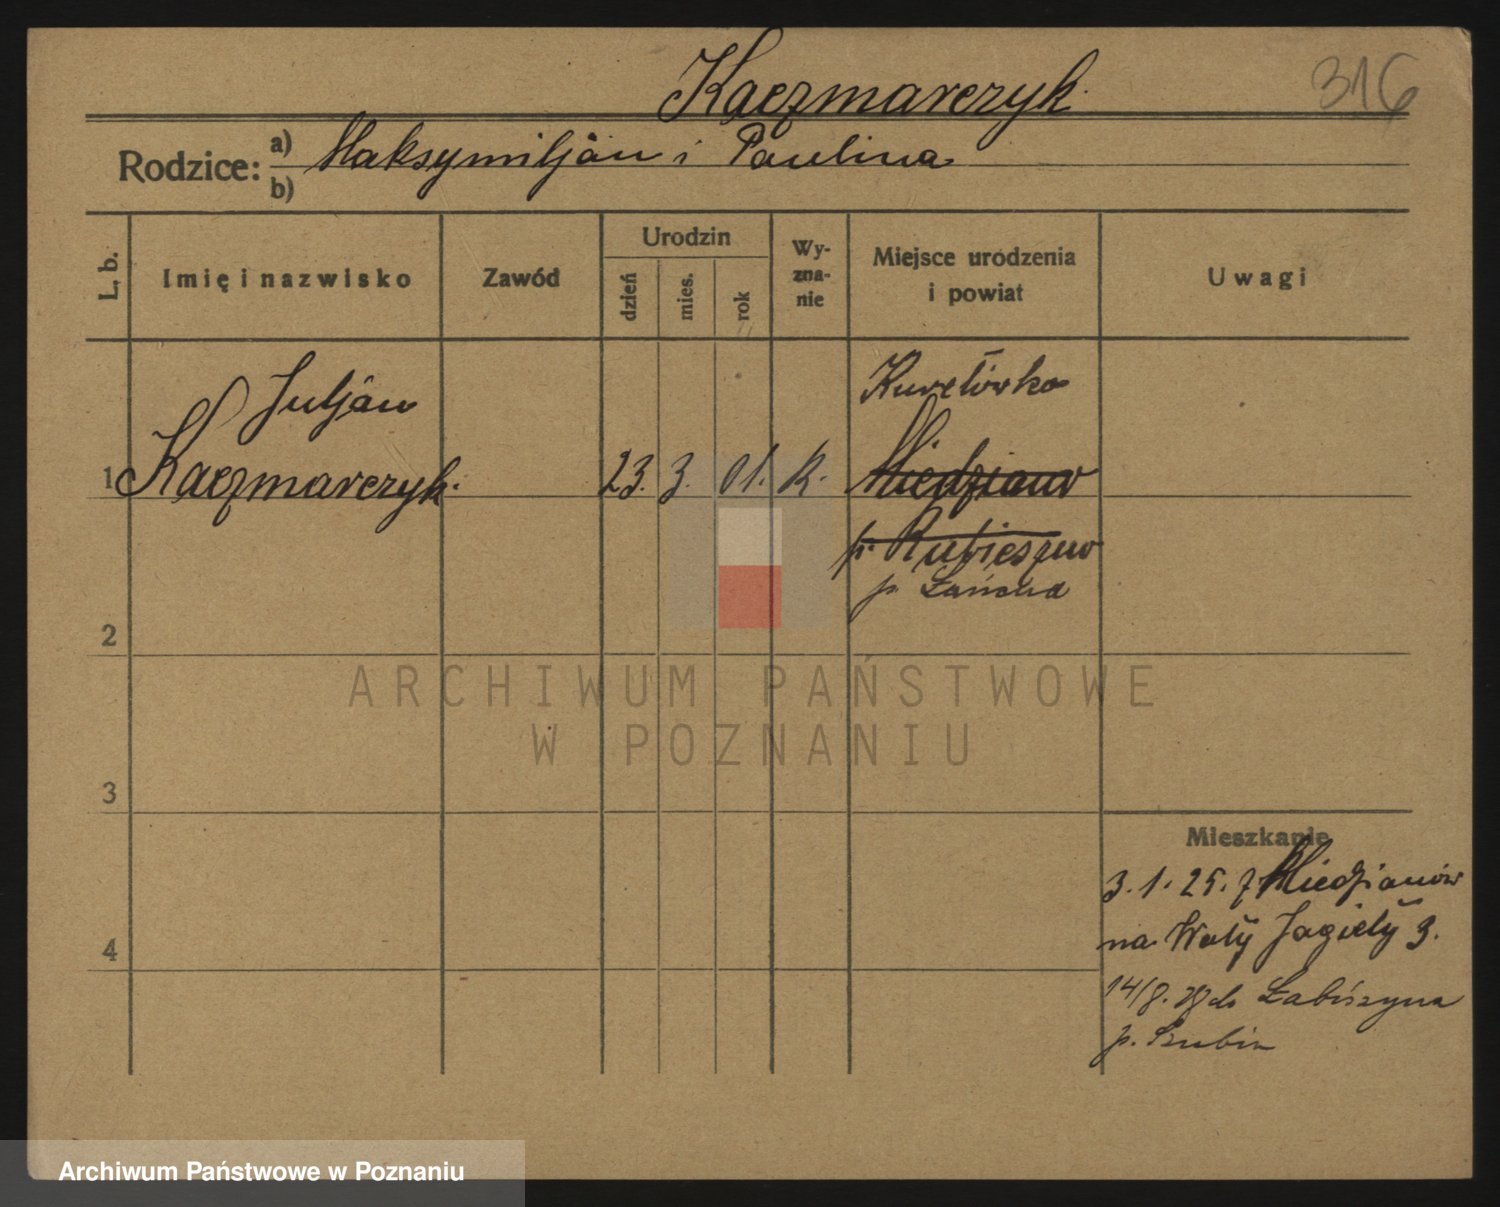 Kaczmarczyk
316
Rodzice: a) Maksymiljan i Paulina
b)
L, b.
Imię i nazwisko
Zawód
Urodzin
dzień
mies.
rok
Wy-
zna-
nie
Miejsce urodzenia
i powiat
Uwagi
Juljan
1 Kaczmarczyk. 23. 3. 01. k.
Miedzianów
p.
p.
2
3
4
Mieszkanie
3. 1. 25. z Miedzianów
na Wały Jagiełły 3.
14/8. 28 do Łabiszyna
p. Szubin
ARCHIWUM PAŃSTWOWE
W POZNANIU
Archiwum Państwowe w Poznaniu